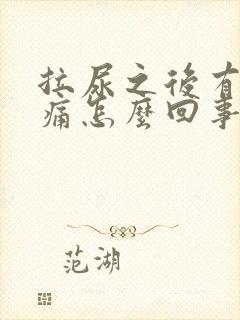 拉尿之後有
痛怎麼回事
范湖